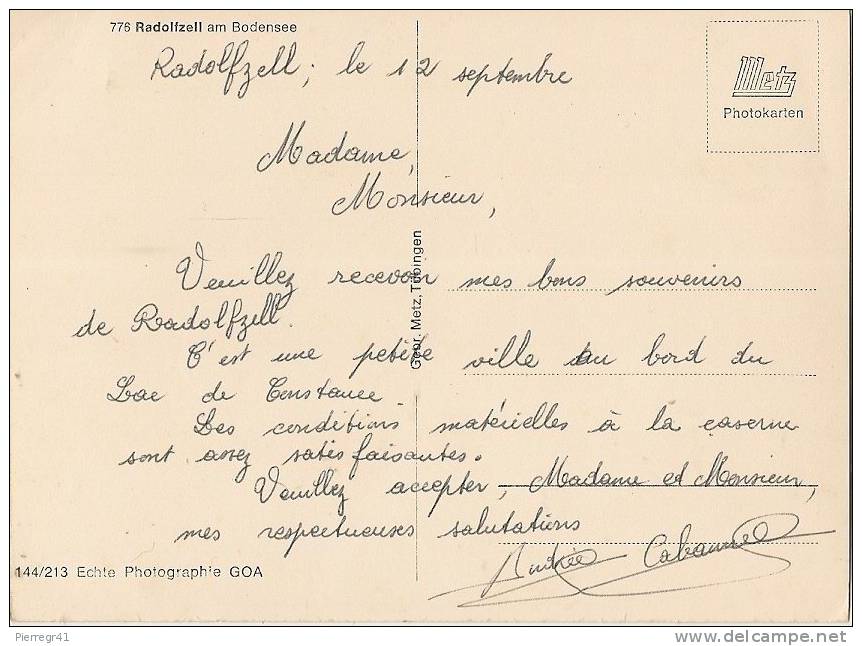 776 Radolfzell am Bodensee
Radolfzell, le 12 septembre
Metz
Photokarten
Madame,
Monsieur,
Veuillez recevoir mes bons souvenirs
de Radolfzell.
C'est une petite ville au bord du
Lac de Constance.
Les conditions matérielles à la caserne
sont assez satisfaisantes.
Veuillez accepter, Madame et Monsieur,
mes respectueuses salutations
Gebr. Metz, Tübingen
144/213 Echte Photographie GOA
Pierregr41
delcampe.net